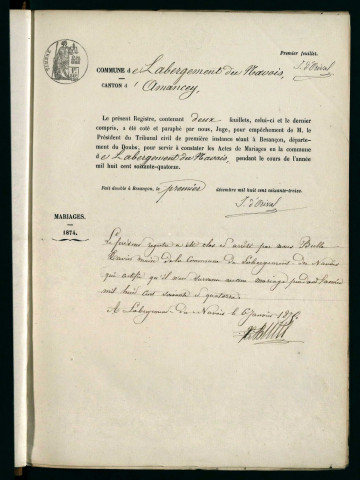 Premier feuillet.
J. d'Orival
TIMBRE
COMMUNE de Labergement du Navois,
CANTON d'Amancey.
Le présent Registre, contenant deux feuillets, celui-ci et le dernier
compris, a été coté et paraphé par nous, Juge, pour empêchement de M. le
Président du Tribunal civil de première instance séant à Besançon, départe-
ment du Doubs, pour servir à constater les Actes de Mariages en la commune
de Labergement du Navois, pendant le cours de l'année
mil huit cent soixante-quatorze.
Fait double à Besançon, le premier décembre mil huit cent soixante-treize.
J. d'Orival
MARIAGES.
1874.
Le présent registre a été clos et arrêté par nous Bulle
Xavier maire de la Commune de Labergement du Navois
qui certifie qu'il n'est survenu aucun mariage pendant l'année
mil huit cent soixante et quatorze.
A Labergement du Navois le 6 janvier 1875.